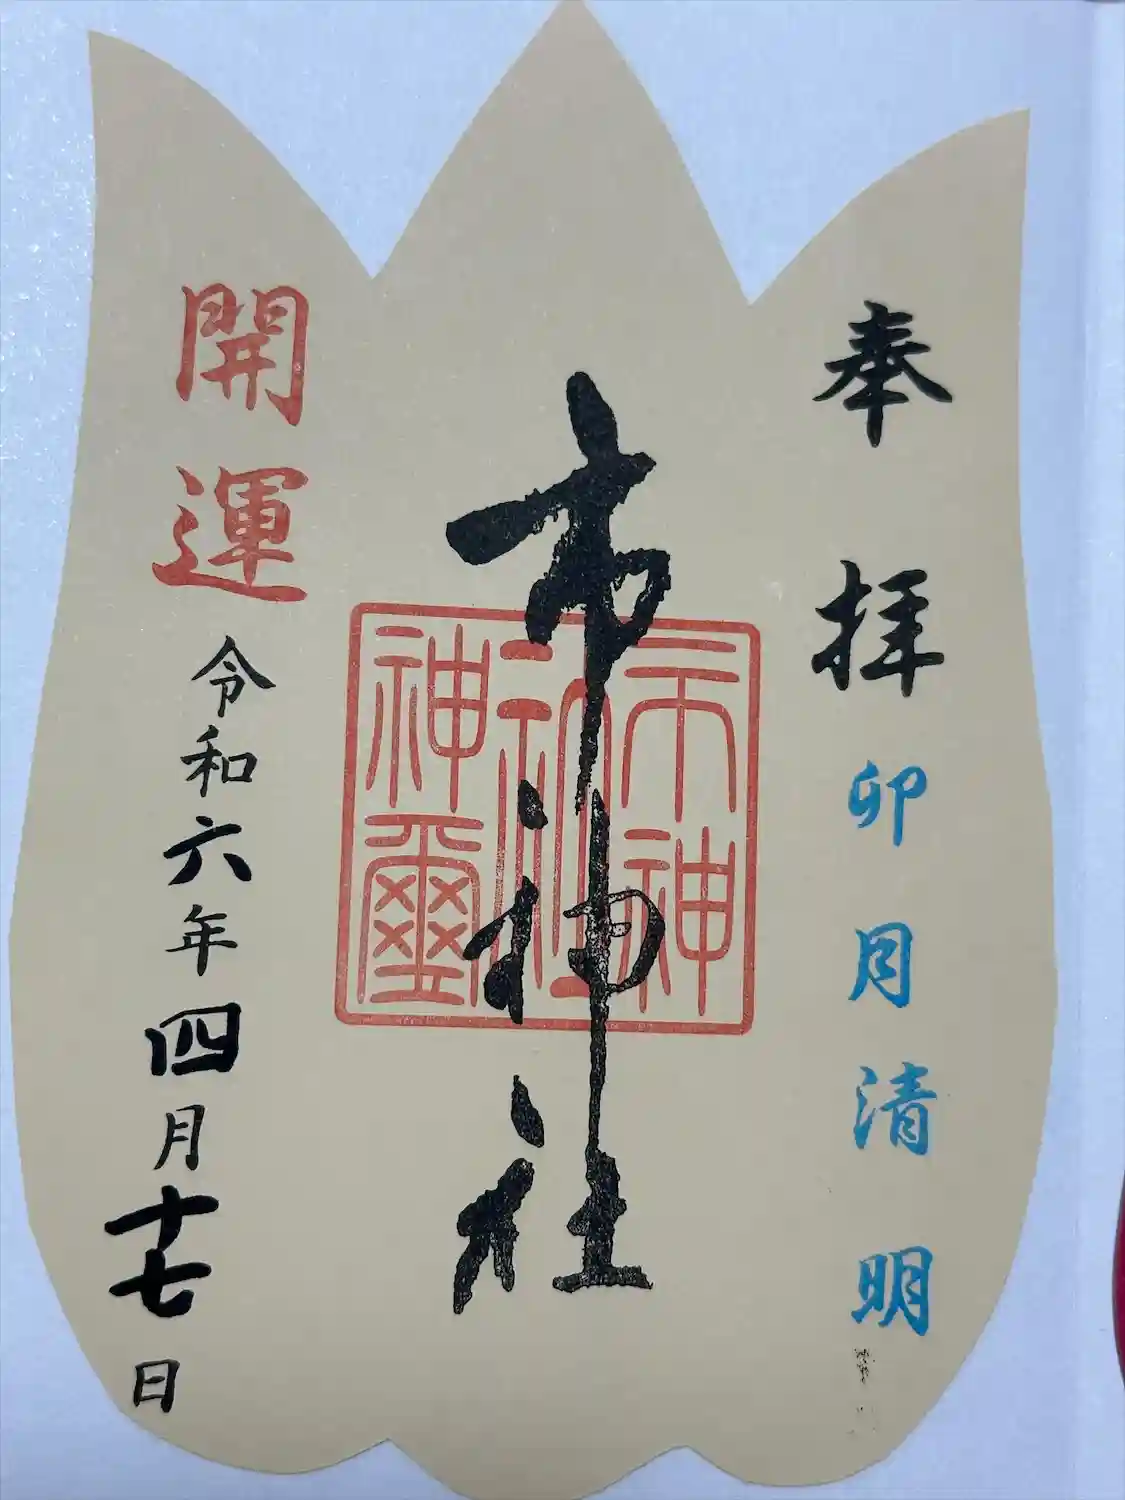 奉拝
卯月清明
市神社
市神
社印
神璽
開運
令和六年四月十七日